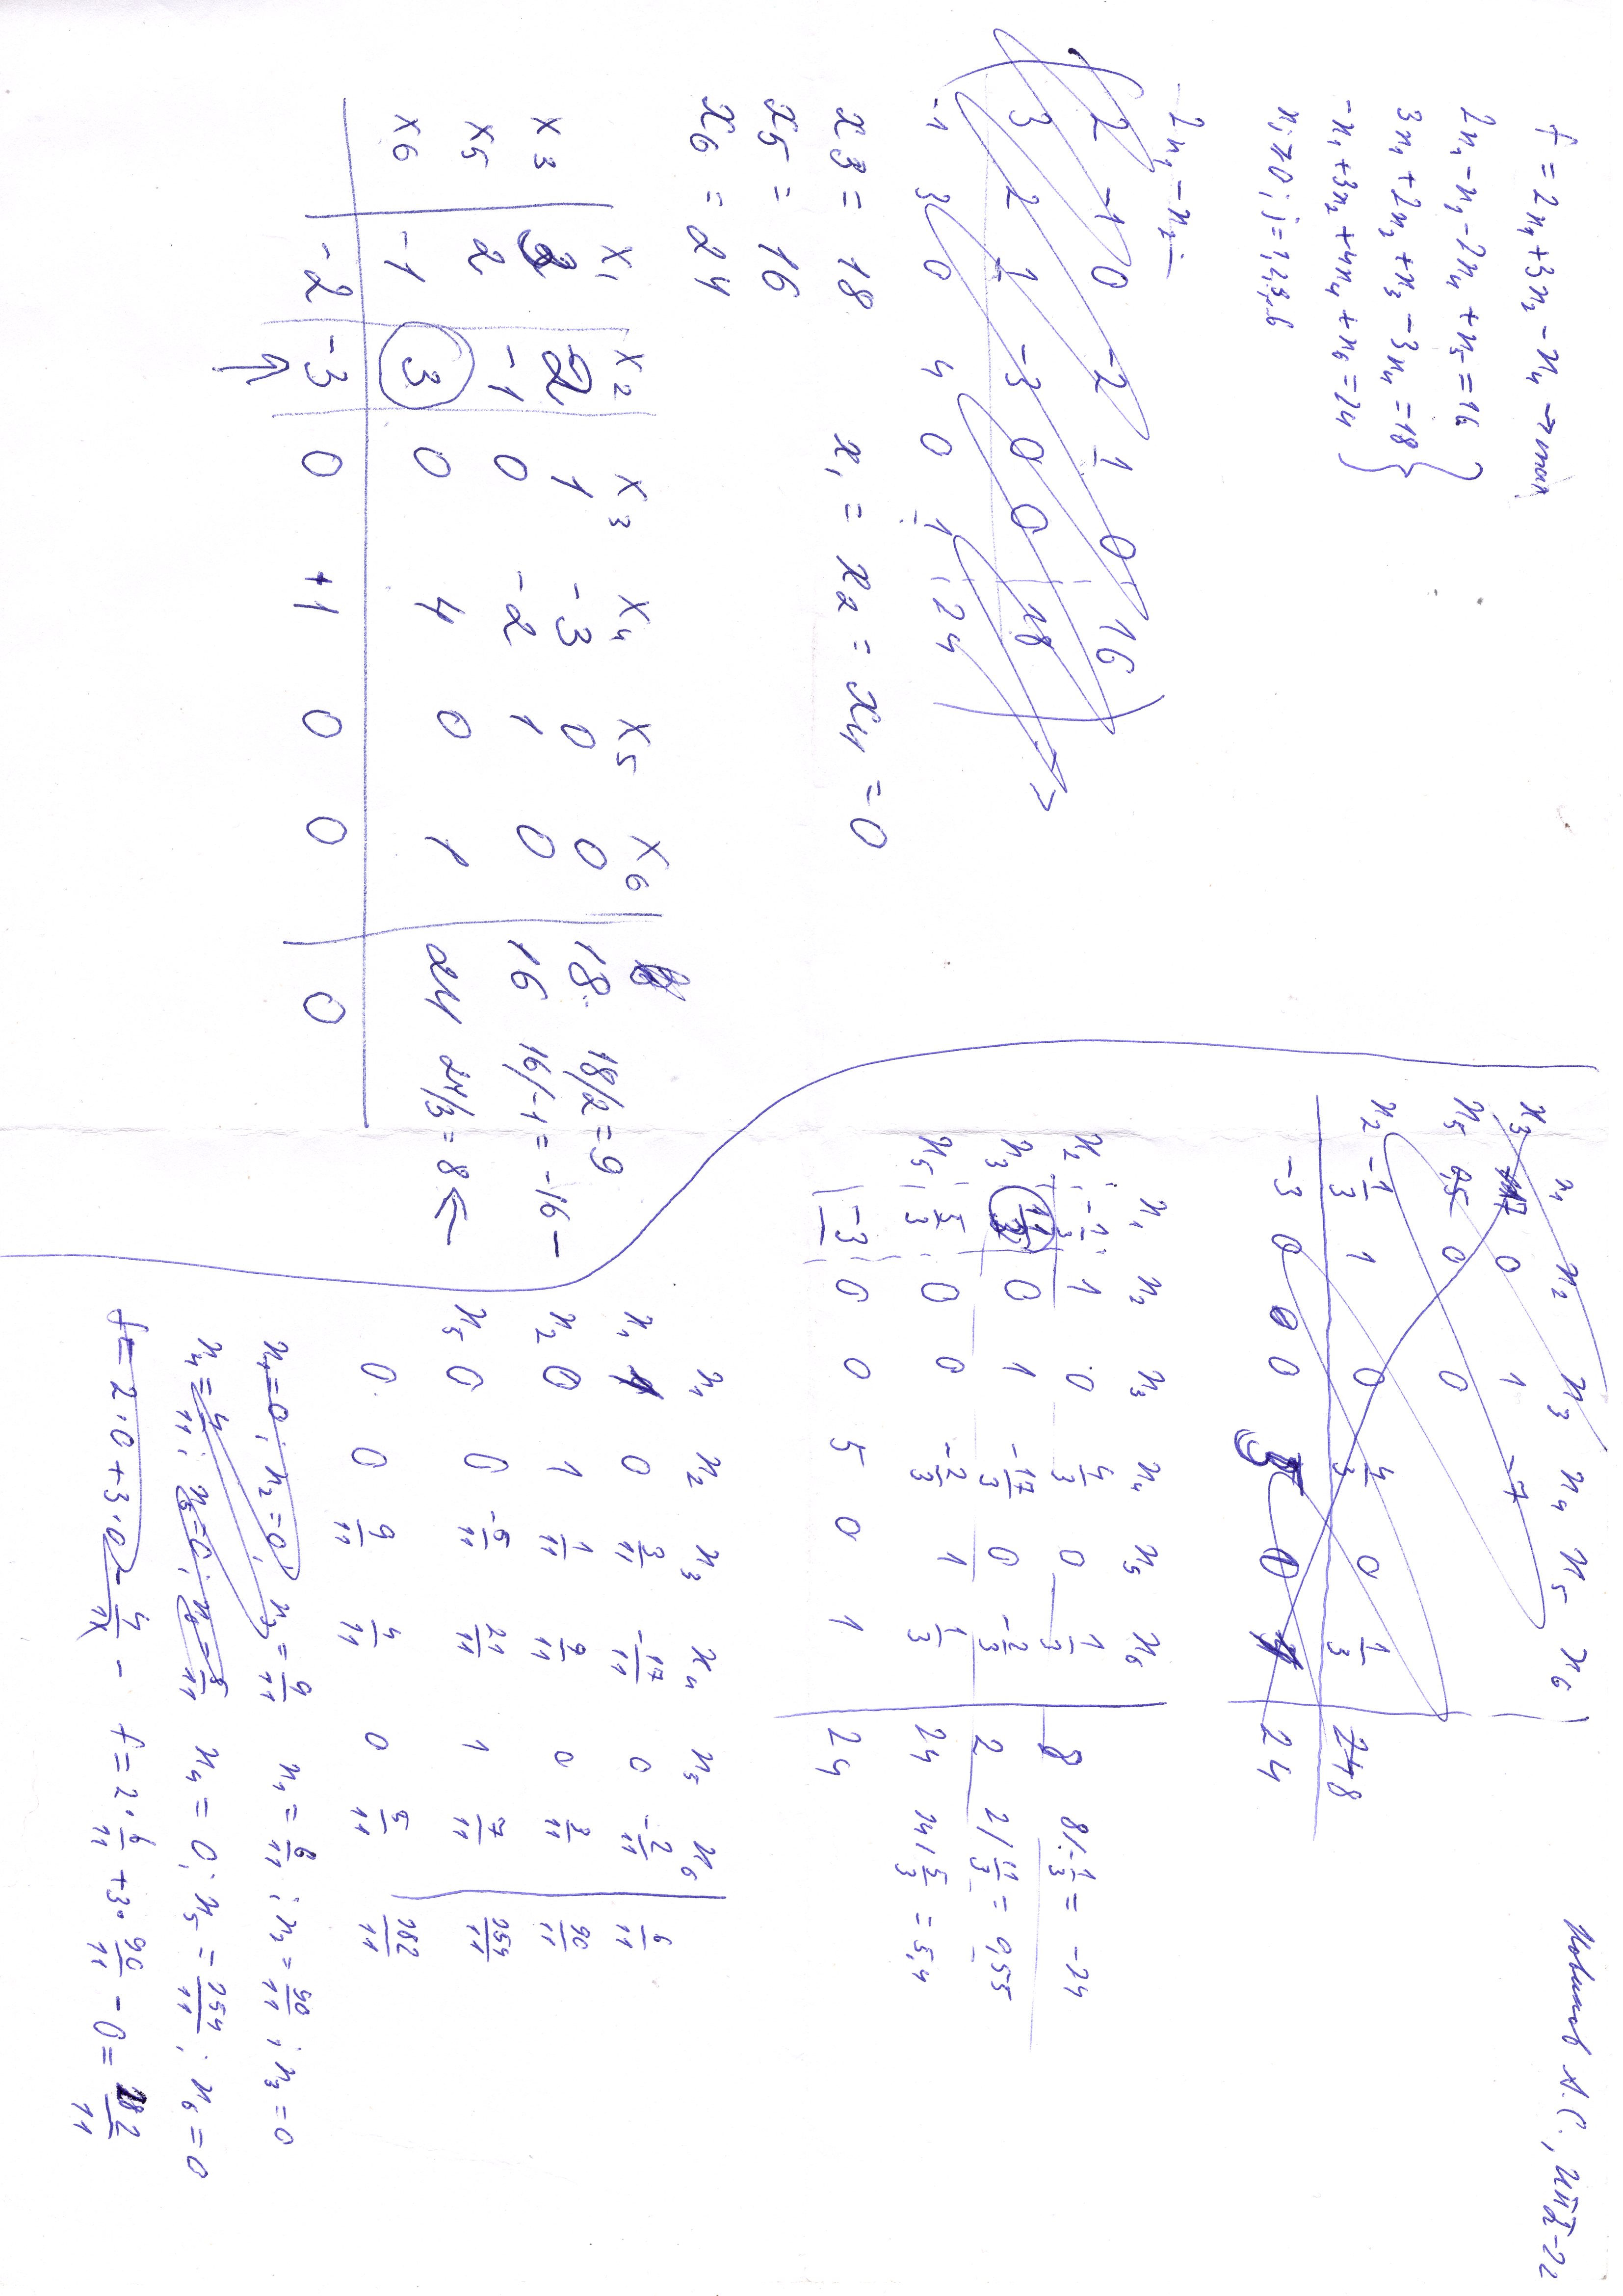 f = 2x₁+3x₂ - x₄ → max
2x₁-x₂-2x₄+x₅=16
3x₁+2x₂+x₃-3x₄=18
-x₁+3x₂+4x₄+x₆=24
xⱼ≥0; j=1,2,3,..6
2x₁-x₂=
2 -1 0 -2 1 0 16
3 2 1 -3 0 0 18
-1 3 0 4 0 1 24
x3 = 18 x₁ = x₂ = x₄ = 0
x5 = 16
x6 = 24
x₁ x₂ x₃ x₄ x₅ x₆
x3 3 2 1 -3 0 0 18 18/2=9
x5 2 -1 0 -2 1 0 16 16/-1=-16 -
x6 -1 3 0 4 0 1 24 24/3=8 ←
-2 -3 0 +1 0 0 0
↑
Новиков А.С.,
x₁ x₂ x₃ x₄ x₅ x₆
x₃ 0 1 -7
x₅ 0,5 0 0
x₂ -1/3 1 0 4/3 0 1/3 24 8
-3 0 0 0 5 0 1 24
x₁ x₂ x₃ x₄ x₅ x₆
x₂ -1/3 1 0 4/3 0 1/3 8 8/-1/3 = -24
x₃ 11/3 0 1 -17/3 0 -2/3 2 2/11/3 = 0,55
x₅ 5/3 0 0 -2/3 1 1/3 24 24/5/3 = 5,4
-3 0 0 5 0 1 24
x₁ x₂ x₃ x₄ x₅ x₆
x₁ 1 0 3/11 -17/11 0 -2/11 6/11
x₂ 0 1 1/11 9/11 0 3/11 90/11
x₅ 0 0 -5/11 21/11 1 7/11 254/11
0 0 9/11 4/11 0 5/11 282/11
x₁=0; x₂=0; x₃=9/11 x₁=6/11; x₂=90/11; x₃=0
x₄=4/11; x₅=0; x₆=5/11 x₄=0; x₅=254/11; x₆=0
f= 2·0+3·0-4/11 - f=2·6/11+3·90/11-0=282/11